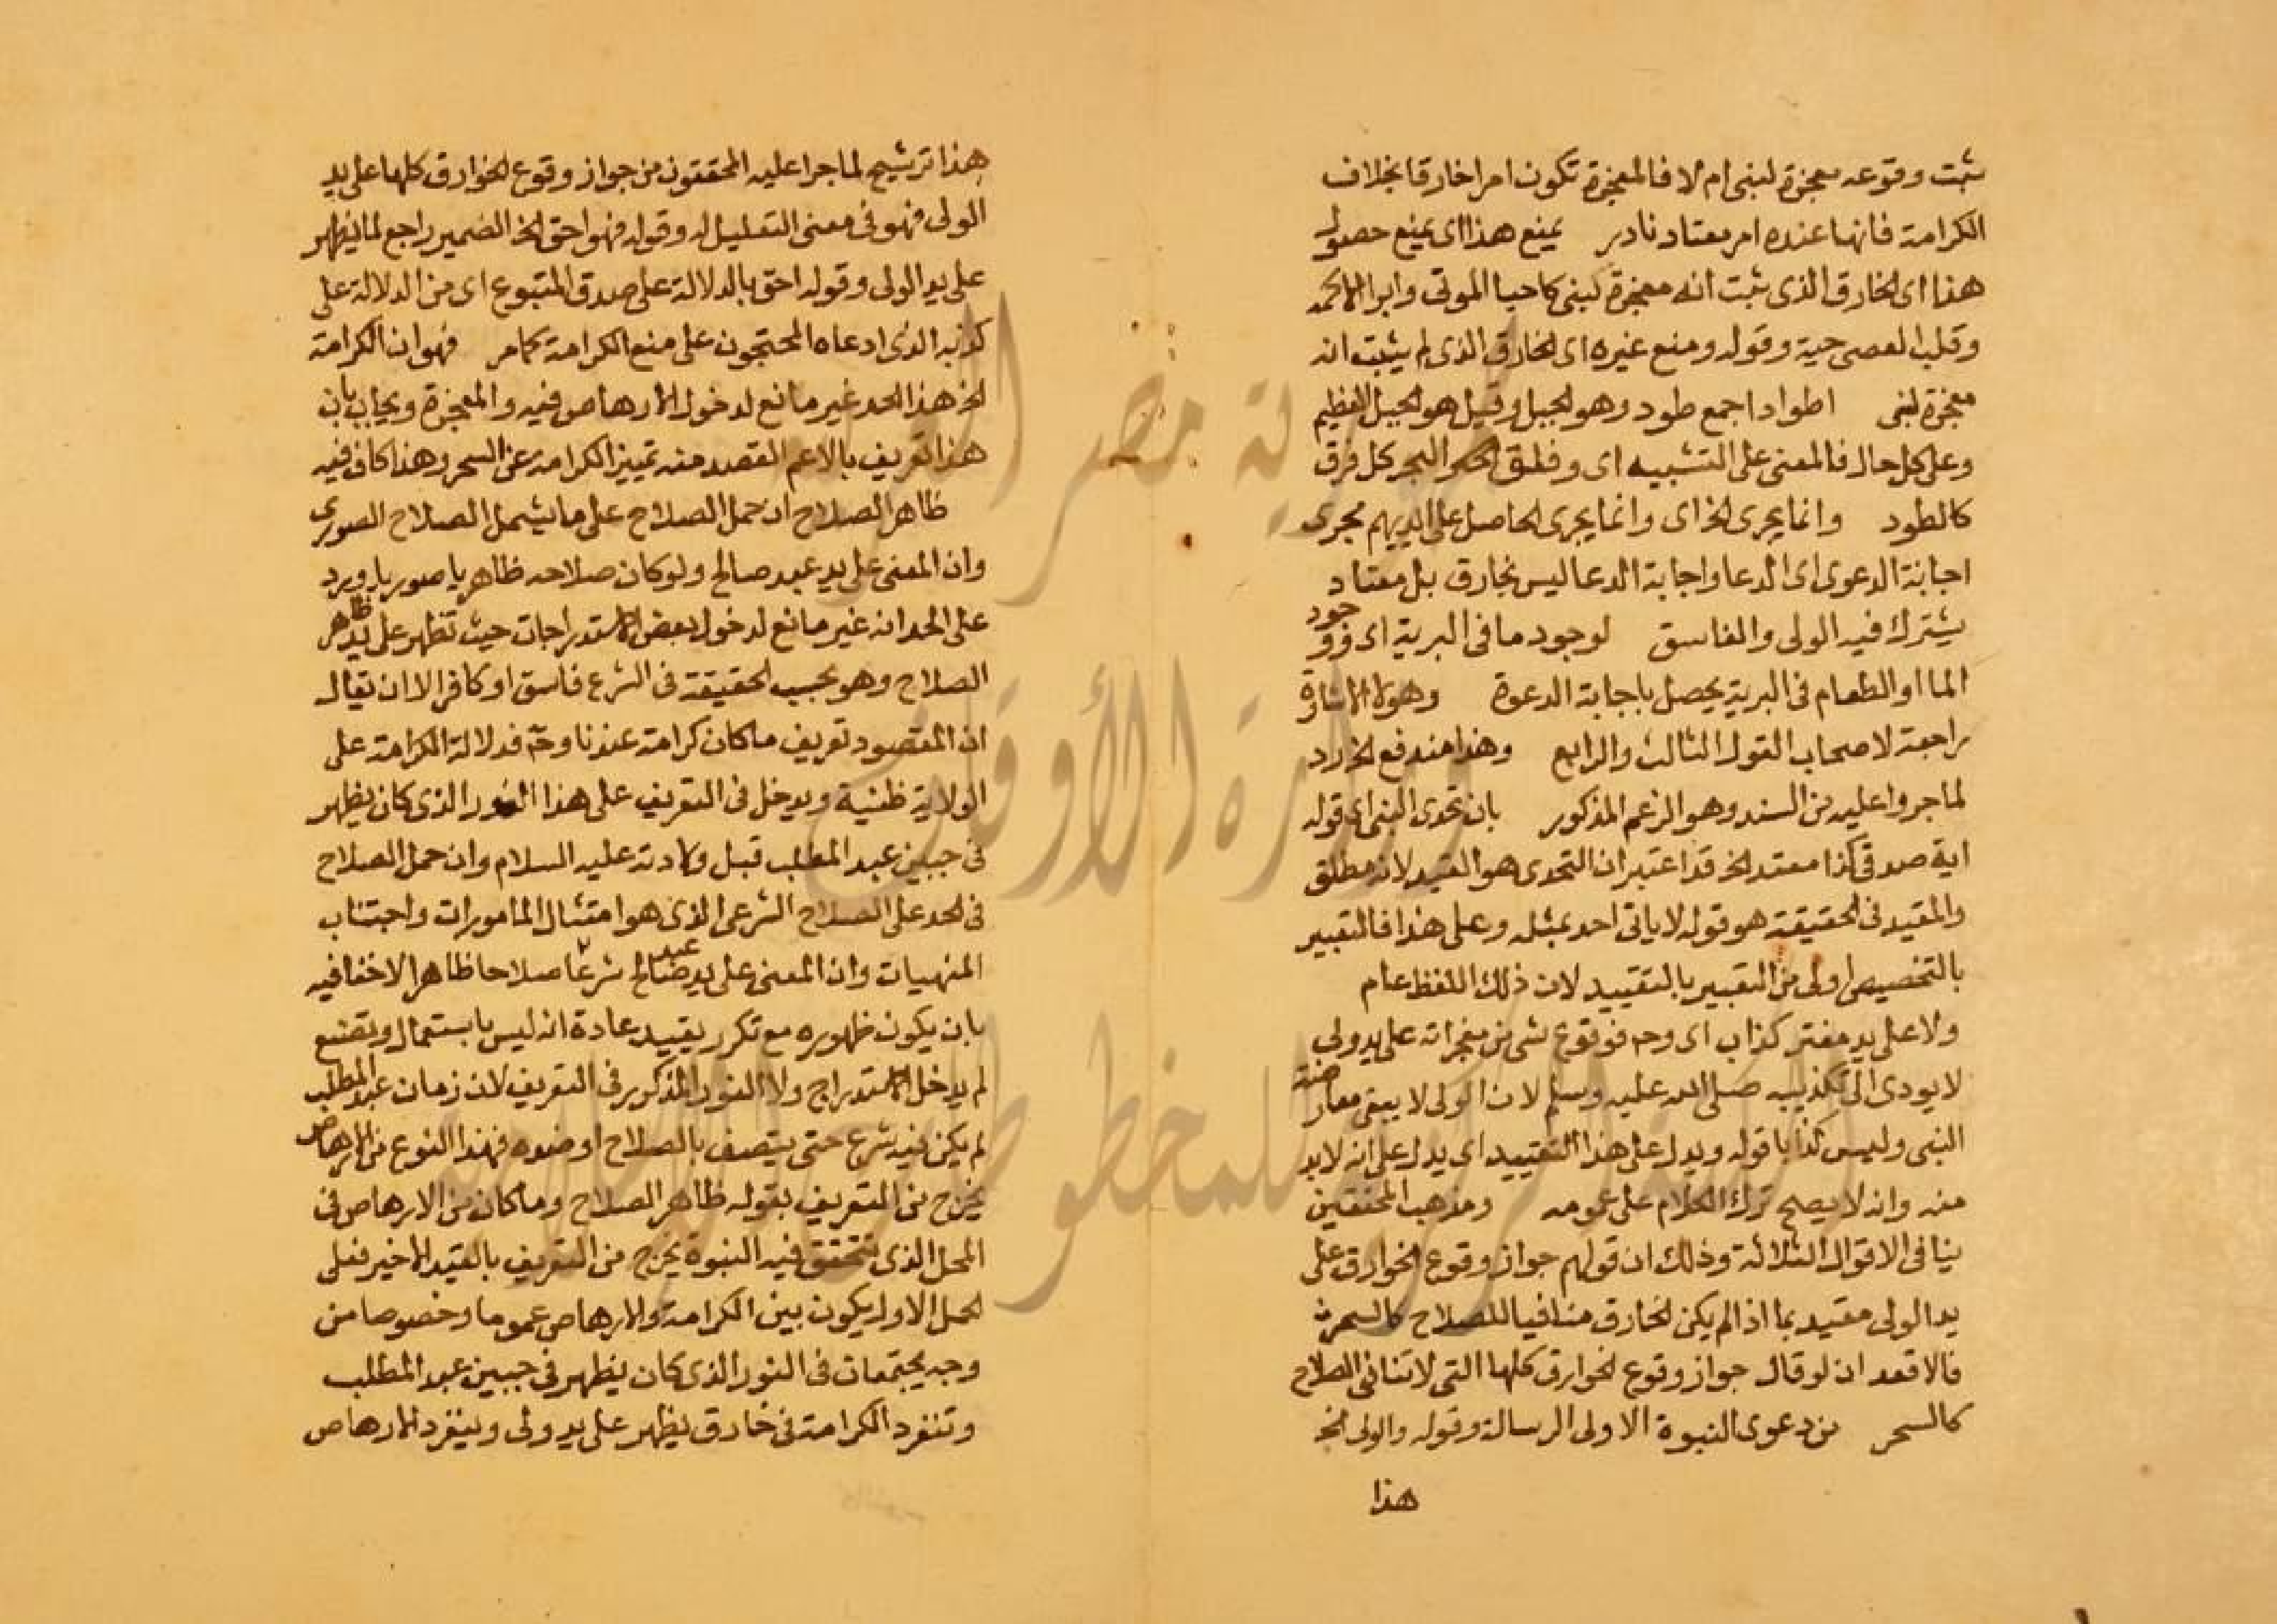 ثبت وقوعه معجزة لنبى ام لا فالمعجزة تكون امرا خارقا بخلاف
الكرامة فانها عنده امر معتاد نادر يمنع هذا اى يمنع حصول
هذا اى الخارق الذى ثبت انه معجزة لنبى كاحيا الموتى وابرا الاكمه
وقلب العصى حية وقوله ومنع غيره اى الخارق الذى لم يثبت انه
معجزة لنبى اطوادا جمع طود وهو الجبل وقيل هو الجبل العظيم
وعلى كل حال فالمعنى على التشبيه اى وفلق لكم البحر كل فرق
كالطود وانما يجرى الخ اى وانما يجرى الحاصل على ايديهم مجرى
اجابة الدعوى اى الدعا واجابة الدعا ليس بخارق بل معتاد
يشترك فيه الولى والفاسق لوجود ما فى البرية اى فوجود
الما او الطعام فى البرية يحصل باجابة الدعوة وهولا الاشارة
راجعة لاصحاب القول الثالث والرابع وهذا مندفع الخ رد
لما جروا عليه من السند وهو الزعم المذكور بان تحدى النبى اى قوله
اية صدقى كذا معتد الخ قد اعتبر ان التحدى هو القيد لانه مطلق
والمقيد فى الحقيقة هو قوله لا ياتى احد بمثله وعلى هذا فالتعبير
بالتخصيص اولى من التعبير بالتقييد لان ذلك اللفظ عام
ولا على يد مفتر كذاب اى وحـ فوقوع شى من معجزاته على يد ولى
لا يودى الى تكذيبه صلى الله عليه وسلم لان الولى لا يبقى معارضته
النبى وليس كذابا قوله ويدل على هذا التقييد اى يدل على انه لابد
منه وانه لا يصح ترك الكلام على عمومه ومذهب المحققين
ينافى الاقوال الثلاثة وذلك ان قولهم جواز وقوع الخوارق على
يد الولى مقيد بما اذا لم يكن الخارق منافيا للصلاح كالسحر
فالاقعد ان لو قال جواز وقوع الخوارق كلها التى لا تنافى الصلاح
كالسحر من دعوى النبوة الاولى الرسالة وقوله والولى الخ
هذا
هذا ترشيح لما جرا عليه المحققون من جواز وقوع الخوارق كلها على يد
الولى فهو فى معنى التعليل له وقوله فهو احق الخ الضمير راجع لما يظهر
على يد الولى وقوله احق بالدلالة على صدق المتبوع اى من الدلالة على
كذبه الذى ادعاه المحتجون على منع الكرامة كما مر فهو ان الكرامة
الخ هذا الحد غير مانع لدخول الارهاص فيه والمعجزة ويجاب بان
هذا تعريف بالاعم القصد منه تمييز الكرامة عن السحر وهذا كاف فيه
ظاهر الصلاح ان حمل الصلاح على ما يشمل الصلاح الصورى
وان المعنى على يد عبد صالح ولو كان صلاحه ظاهريا صوريا ويرد
على الحد انه غير مانع لدخول بعض الاستدراجات حيث تظهر على يد ظاهر
الصلاح وهو بحسب الحقيقة فى الشرع فاسق او كافر الا ان يقال
ان المقصود تعريف ما كان كرامة عندنا وحـ فدلالة الكرامة على
الولاية ظنية ويدخل فى التعريف على هذا النور الذى كان يظهر
فى جبين عبد المطلب قبل ولادته عليه السلام وان حمل الصلاح
فى الحد على الصلاح الشرعى الذى هو امتثال المامورات واجتناب
المنهيات وان المعنى على يد عبد صالح شرعا صلاحا ظاهرا لا خفا فيه
بان يكون ظهوره مع تكرر يقيد عادة انه ليس باستعمال وتصنع
لم يدخل الاستدراج ولا النور المذكور فى التعريف لان زمان عبد المطلب
لم يكن فيه شرع حتى يتصف بالصلاح او ضده فهذا النوع من الارهاص
يخرج من التعريف بقوله ظاهر الصلاح وما كان من الارهاص فى
المحل الذى تتحقق فيه النبوة يخرج من التعريف بالقيد الاخير فعلى
الحمل الاول يكون بين الكرامة والارهاص عموما وخصوصا من
وجه يجتمعان فى النور الذى كان يظهر فى جبين عبد المطلب
وتنفرد الكرامة فى خارق يظهر على يد ولى وينفرد الارهاص